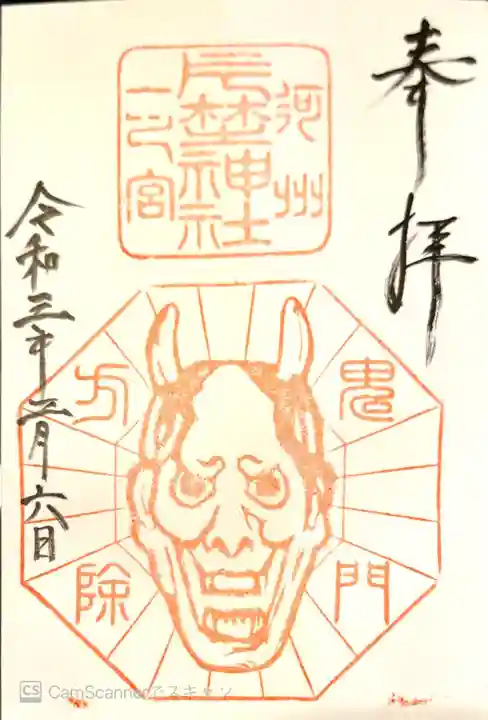 奉拝
河州
片埜神社
一之宮
鬼門
方除
令和三年二月六日
CS CamScannerでスキャン